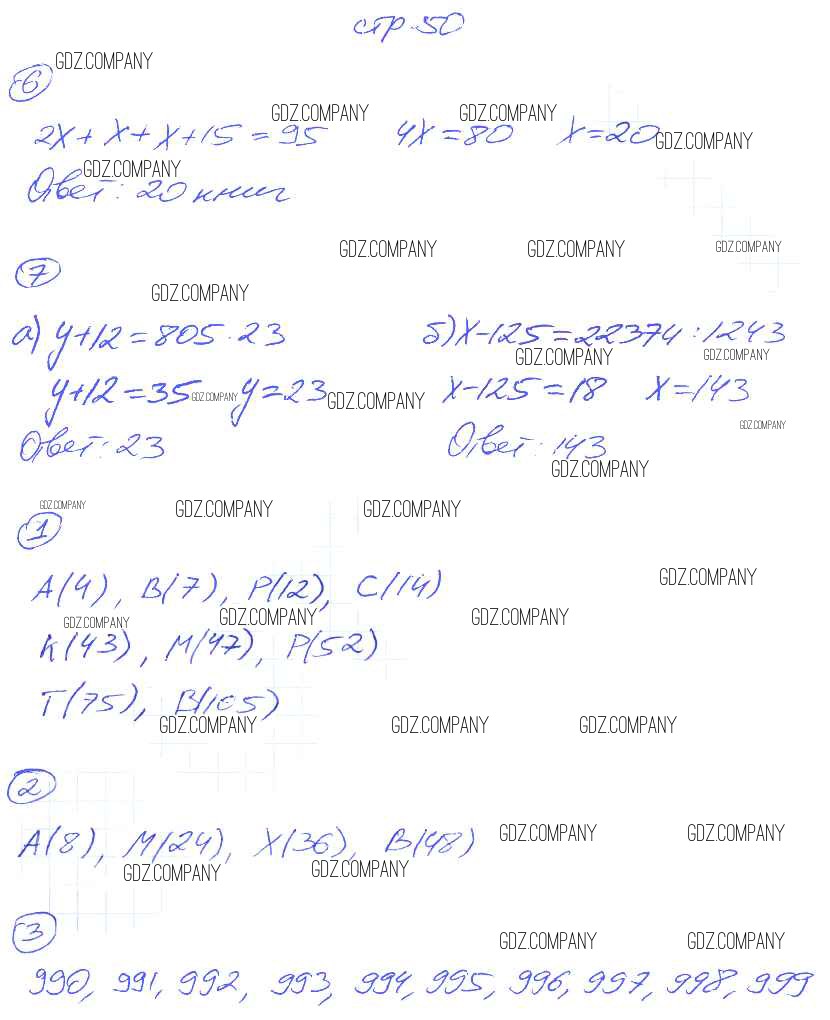 стр 50
GDZ.COMPANY
6
GDZ.COMPANY GDZ.COMPANY
2x + x + x + 15 = 95 4x = 80 x = 20 GDZ.COMPANY
GDZ.COMPANY
Ответ: 20 книг
GDZ.COMPANY GDZ.COMPANY GDZ.COMPANY
7
GDZ.COMPANY
а) y+12 = 805 : 23 б) x-125 = 22374 : 1243
GDZ.COMPANY GDZ.COMPANY
y+12 = 35 GDZ.COMPANY y = 23 GDZ.COMPANY x-125 = 18 x = 143
GDZ.COMPANY
Ответ: 23 Ответ: 143
GDZ.COMPANY
GDZ.COMPANY GDZ.COMPANY GDZ.COMPANY
1
GDZ.COMPANY
A(4), B(7), P(12), C(14)
GDZ.COMPANY GDZ.COMPANY GDZ.COMPANY
K(43), M(47), P(52)
T(75), B(105)
GDZ.COMPANY GDZ.COMPANY GDZ.COMPANY
2
A(8), M(24), X(36), B(48) GDZ.COMPANY GDZ.COMPANY
GDZ.COMPANY GDZ.COMPANY
3
GDZ.COMPANY GDZ.COMPANY
990, 991, 992, 993, 994, 995, 996, 997, 998, 999